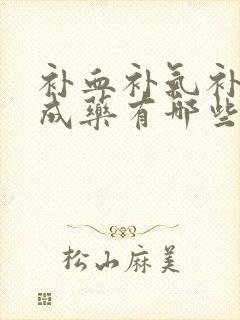 补血补氣补
成藥有哪些
松山麻美